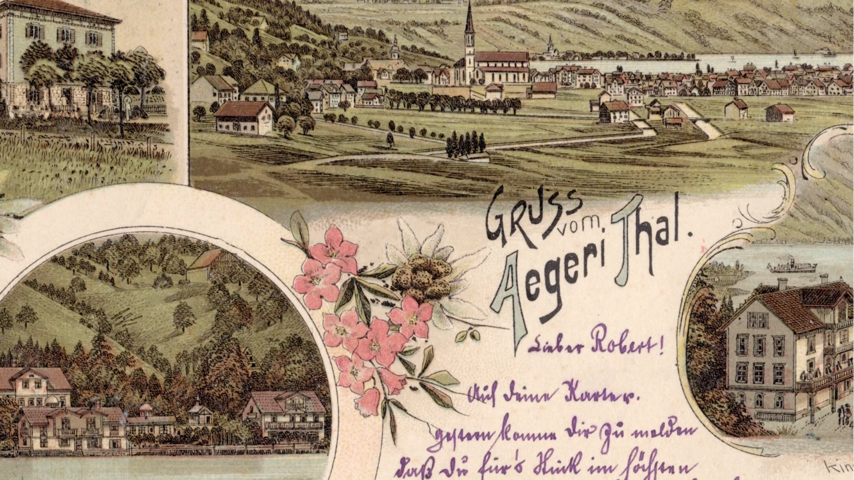 Gruss
vom
Aegeri Thal.
Lieber Robert!
Auf deine Karte v.
gestern komme dir zu melden
daß Du für's Stück im höchsten
Kin